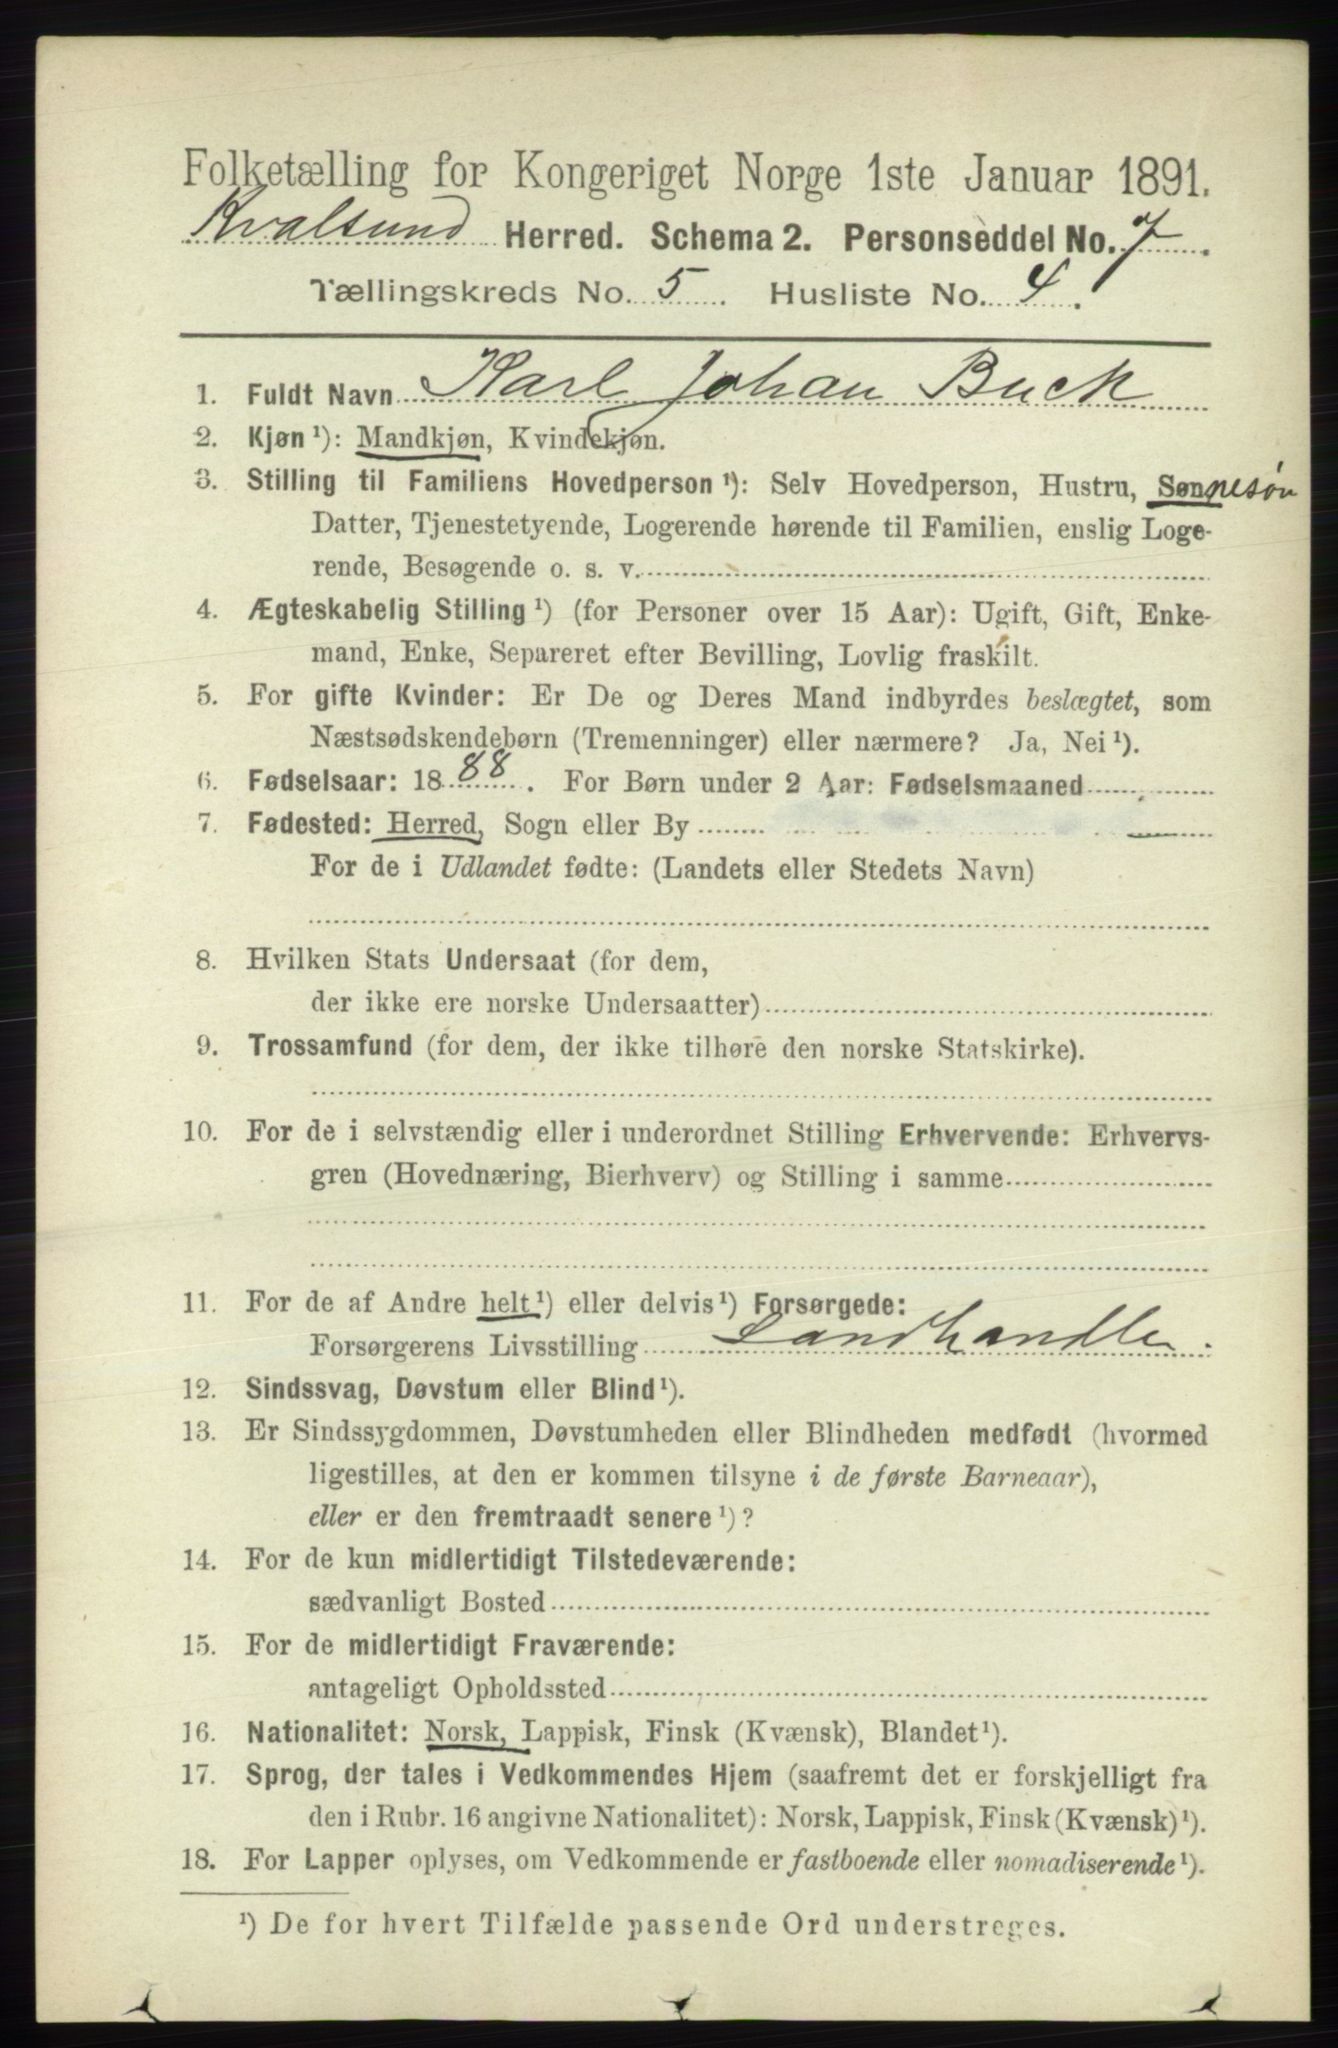 Folketælling for Kongeriget Norge 1ste Januar 1891.
Kvalsund Herred. Schema 2. Personseddel No. 7.
Tællingskreds No. 5. Husliste No. 4.
1. Fuldt Navn Karl Johan Buck
2. Kjøn¹): Mandkjøn, Kvindekjøn.
3. Stilling til Familiens Hovedperson¹): Selv Hovedperson, Hustru, Sønnesøn
Datter, Tjenestetyende, Logerende hørende til Familien, enslig Loge-
rende, Besøgende o. s. v.
4. Ægteskabelig Stilling¹) (for Personer over 15 Aar): Ugift, Gift, Enke-
mand, Enke, Separeret efter Bevilling, Lovlig fraskilt.
5. For gifte Kvinder: Er De og Deres Mand indbyrdes beslægtet, som
Næstsødskendebørn (Tremenninger) eller nærmere? Ja, Nei¹).
6. Fødselsaar: 1888. For Børn under 2 Aar: Fødselsmaaned
7. Fødested: Herred, Sogn eller By
For de i Udlandet fødte: (Landets eller Stedets Navn)
8. Hvilken Stats Undersaat (for dem,
der ikke ere norske Undersaatter)
9. Trossamfund (for dem, der ikke tilhøre den norske Statskirke).
10. For de i selvstændig eller i underordnet Stilling Erhvervende: Erhvervs-
gren (Hovednæring, Bierhverv) og Stilling i samme
11. For de af Andre helt¹) eller delvis¹) Forsørgede:
Forsørgerens Livsstilling Landhandler.
12. Sindssvag, Døvstum eller Blind¹).
13. Er Sindssygdommen, Døvstumheden eller Blindheden medfødt (hvormed
ligestilles, at den er kommen tilsyne i de første Barneaar),
eller er den fremtraadt senere¹)?
14. For de kun midlertidigt Tilstedeværende:
sædvanligt Bosted
15. For de midlertidigt Fraværende:
antageligt Opholdssted
16. Nationalitet: Norsk, Lappisk, Finsk (Kvænsk), Blandet¹).
17. Sprog, der tales i Vedkommendes Hjem (saafremt det er forskjelligt fra
den i Rubr. 16 angivne Nationalitet): Norsk, Lappisk, Finsk (Kvænsk)¹).
18. For Lapper oplyses, om Vedkommende er fastboende eller nomadiserende¹).
¹) De for hvert Tilfælde passende Ord understreges.